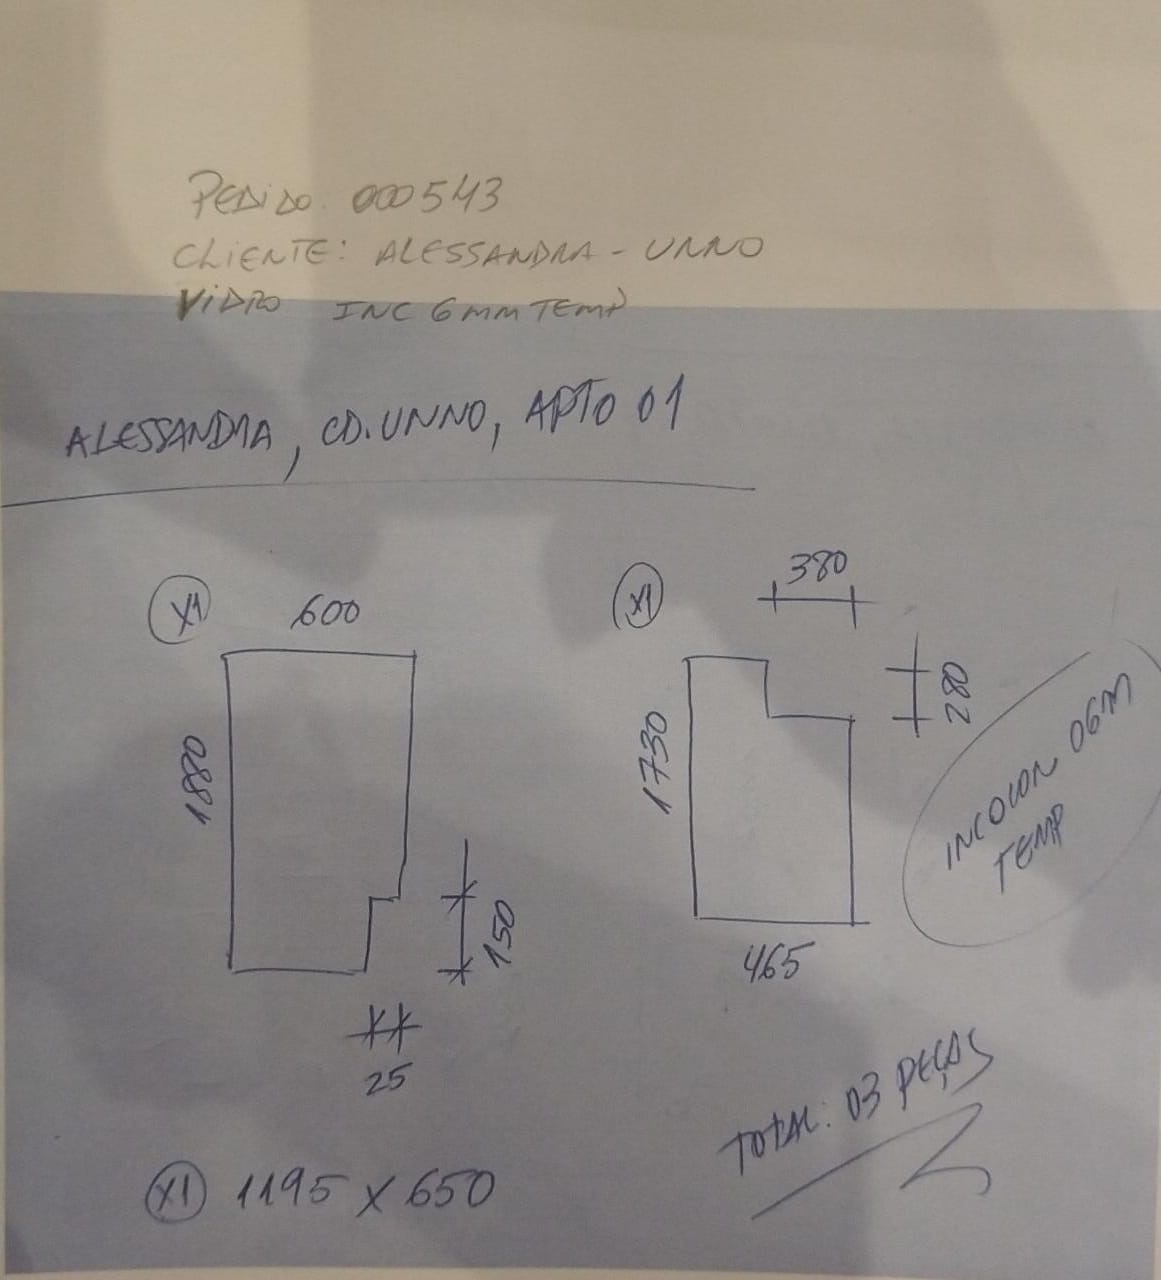 PEDIDO. 000543
CLIENTE: ALESSANDRA - UNNO
VIDRO INC 6MM TEMP
ALESSANDRA, CD. UNNO, APTO 01
X1
600
1880
150
25
X1
380
280
1730
465
INCOLOR 06M
TEMP
TOTAL: 03 PEÇAS
X1 1195 X 650